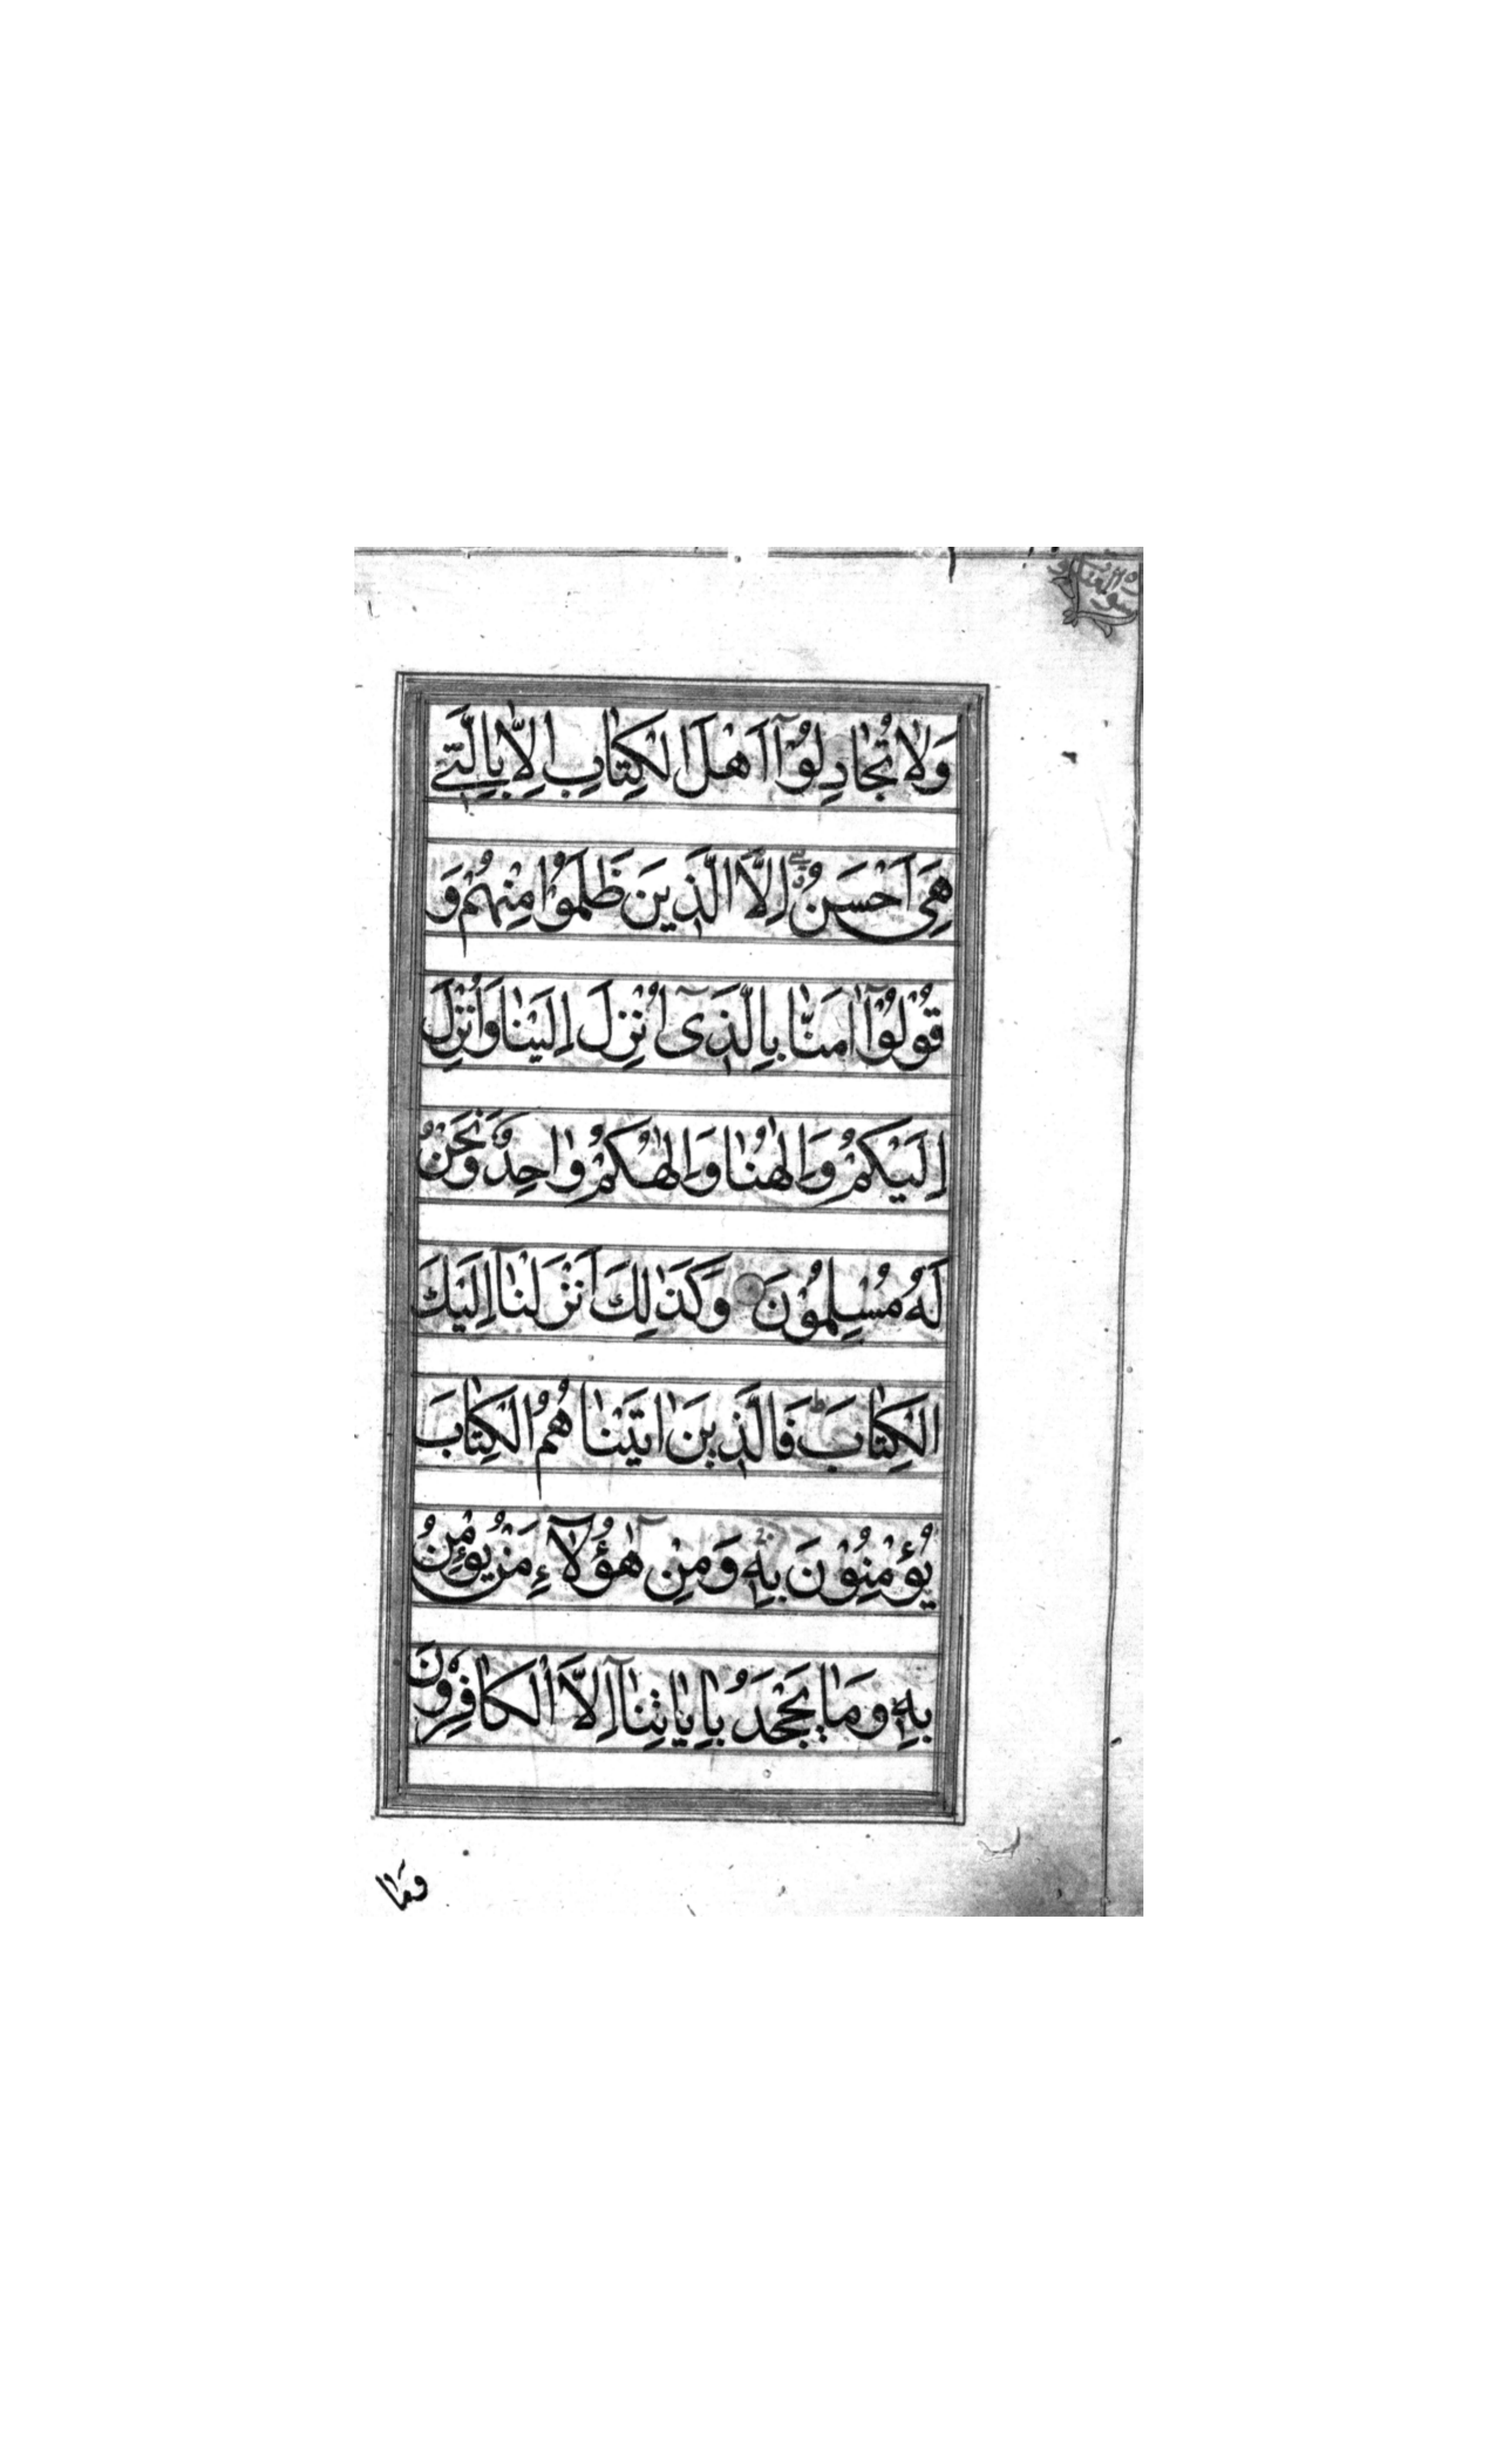 سورة العنكبوت
وَلَا تُجَادِلُوْٓا اَهْلَ الْكِتَابِ اِلَّا بِالَّتِيْ
هِيَ اَحْسَنُ اِلَّا الَّذِينَ ظَلَمُوْا مِنْهُمْ وَ
قُوْلُوْٓا اٰمَنَّا بِالَّذِيٓ اُنْزِلَ اِلَيْنَا وَاُنْزِلَ
اِلَيْكُمْ وَاِلٰهُنَا وَاِلٰهُكُمْ وَاحِدٌ وَنَحْنُ
لَهُ مُسْلِمُوْنَ وَكَذٰلِكَ اَنْزَلْنَآ اِلَيْكَ
الْكِتَابَ ط فَالَّذِينَ اٰتَيْنَا هُمُ الْكِتَابَ
يُؤْمِنُوْنَ بِهِ وَمِنْ هٰٓؤُلَآءِ مَنْ يُؤْمِنُ
بِهِ وَمَا يَجْحَدُ بِاٰيَاتِنَآ اِلَّا الْكَافِرُوْنَ
وَمَا